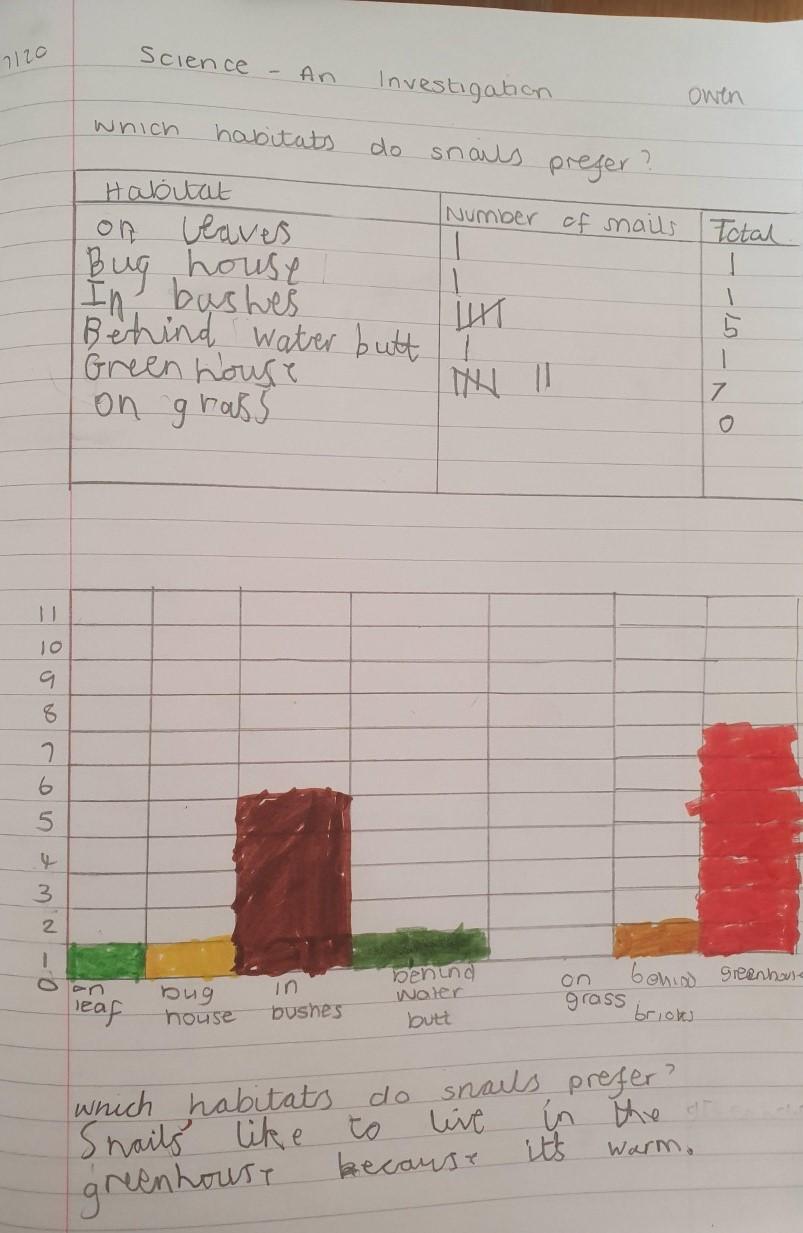 7/20
Science - An Investigation Owen
Which habitats do snails prefer?
Habitat Number of snails Total
on leaves | 1
Bug house | 1
In bushes 5
Behind water butt | 1
Greenhouse || 7
on grass 0
11
10
9
8
7
6
5
4
3
2
1
0
on leaf
bug house
in bushes
behind water butt
on grass
behind bricks
greenhouse
which habitats do snails prefer?
Snails like to live in the
greenhouse because it's warm.